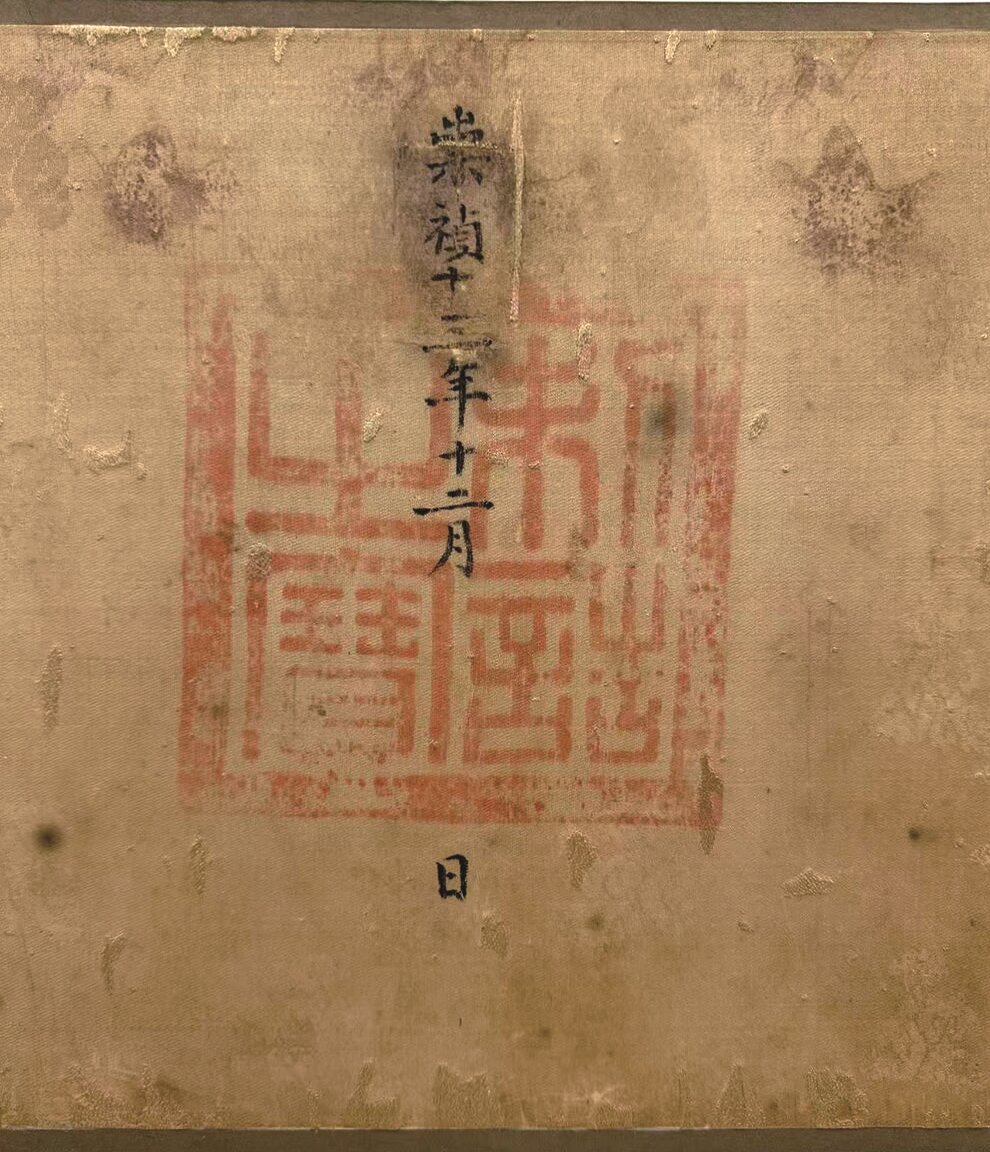 崇禎十三年十二月 日
制誥
之寶